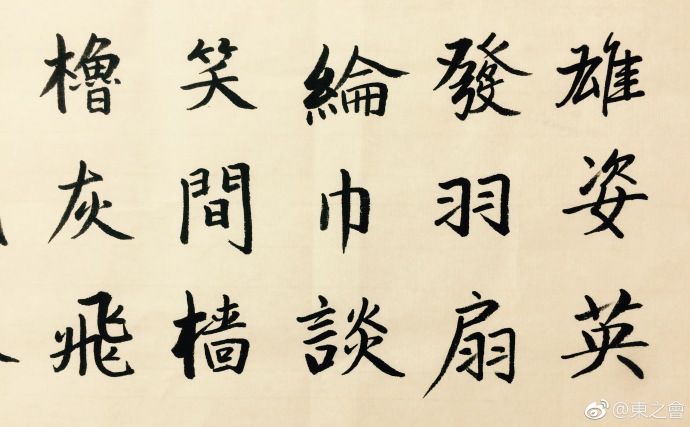 雄姿英
發羽扇
綸巾談
笑間檣
櫓灰飛
@東之會